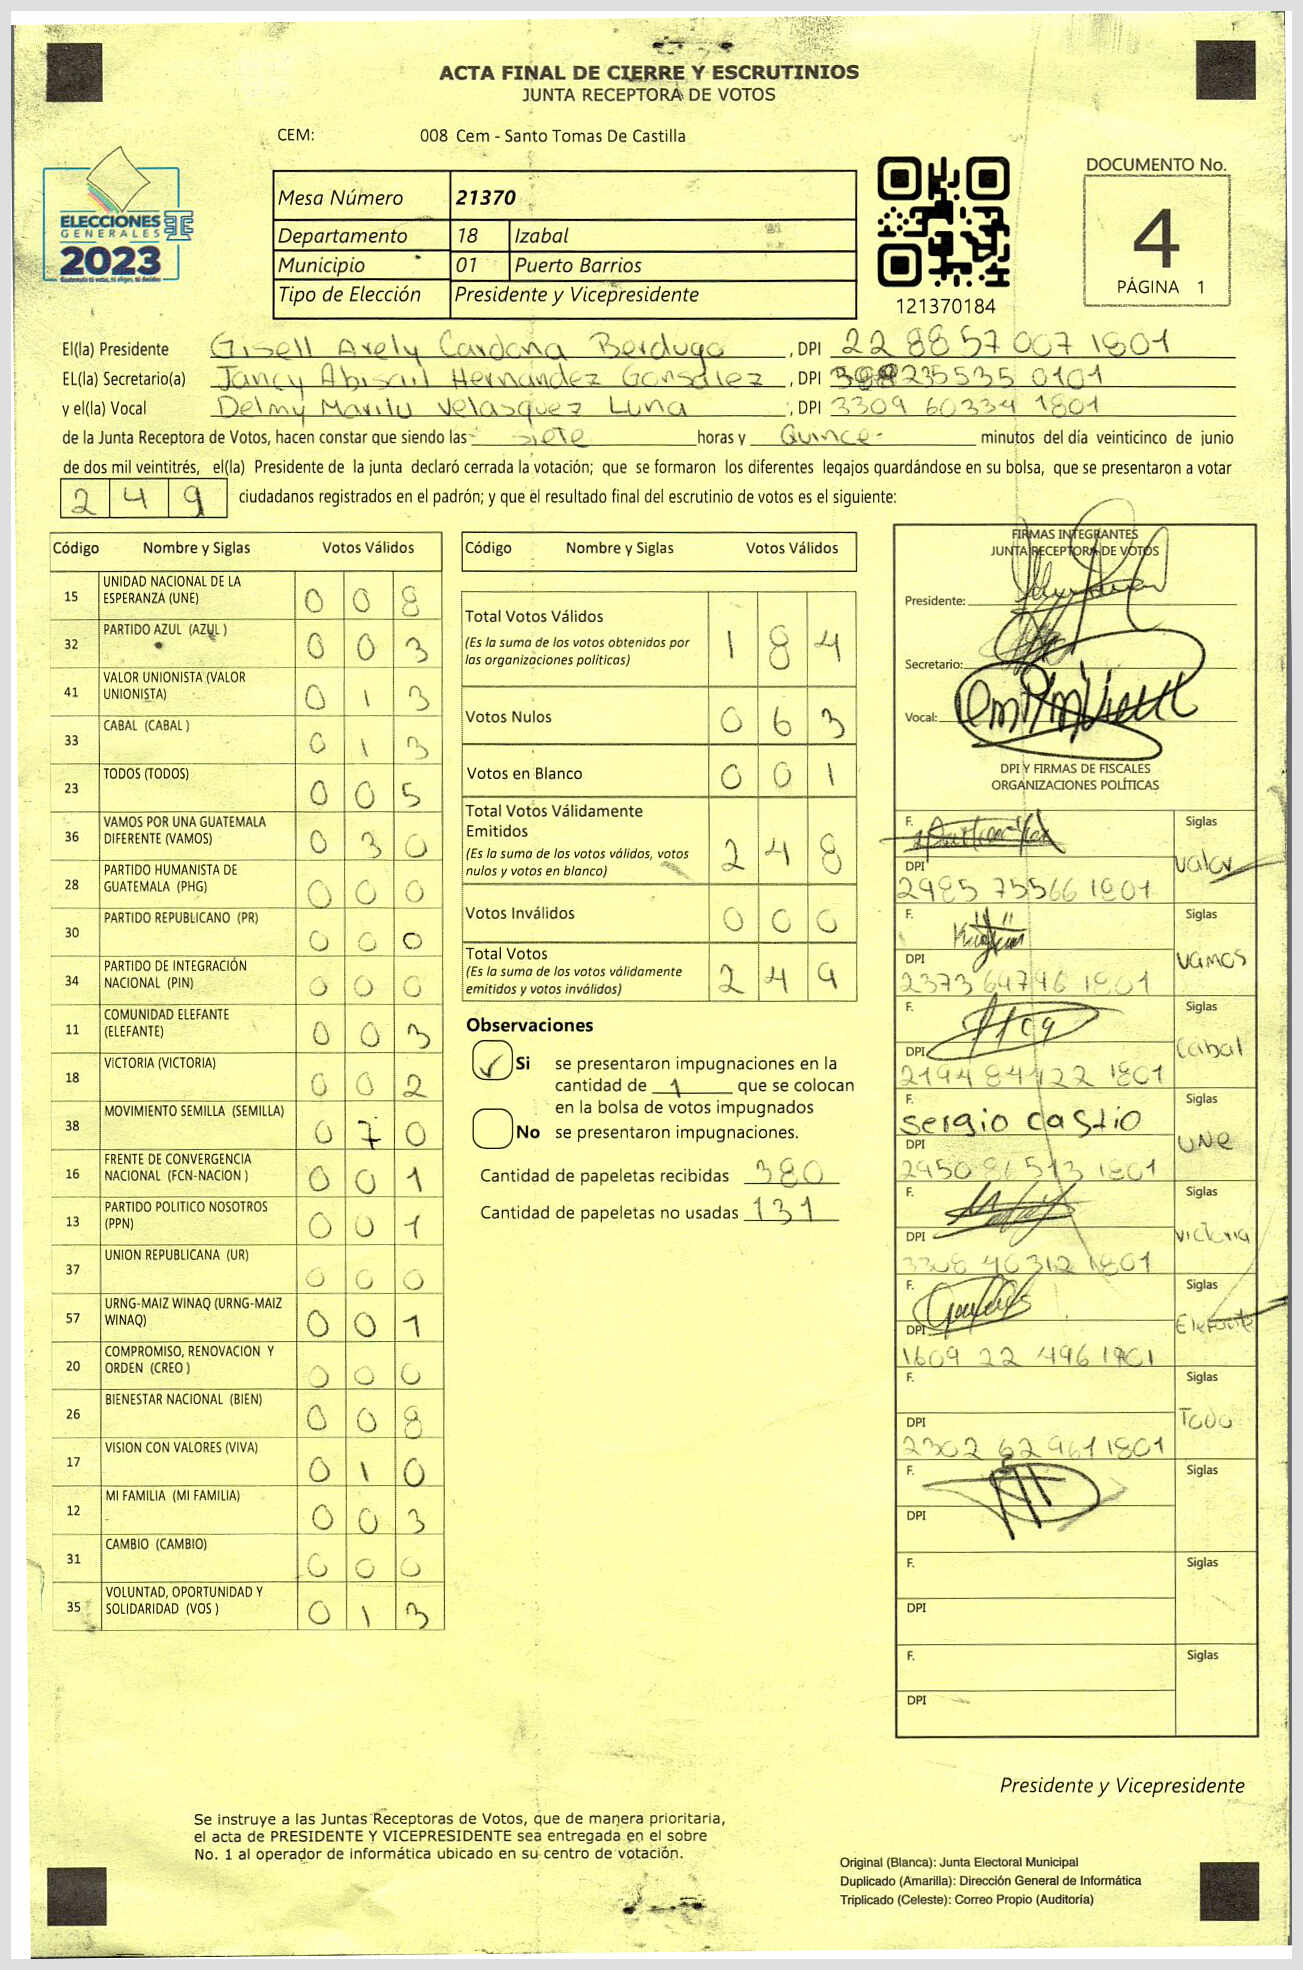 ACTA FINAL DE CIERRE Y ESCRUTINIOS
JUNTA RECEPTORA DE VOTOS
CEM: 008 Cem - Santo Tomas De Castilla
ELECCIONES
GENERALES
2023
Mesa Número 21370
Departamento 18 Izabal
Municipio 01 Puerto Barrios
Tipo de Elección Presidente y Vicepresidente
121370184
DOCUMENTO No.
4
PÁGINA 1
El(la) Presidente Gisell Arely Cardona Berdugo, DPI 22 8857007 1801
EL(la) Secretario(a) Jancy Abisail Hernandez Gonsalez, DPI 235535 0101
y el(la) Vocal Delmy Marilu Velasquez Luna, DPI 3309 60334 1801
de la Junta Receptora de Votos, hacen constar que siendo las siete horas y Quince minutos del día veinticinco de junio
de dos mil veintitrés, el(la) Presidente de la junta declaró cerrada la votación; que se formaron los diferentes legajos guardándose en su bolsa, que se presentaron a votar
249 ciudadanos registrados en el padrón; y que el resultado final del escrutinio de votos es el siguiente:
Código Nombre y Siglas Votos Válidos
15 UNIDAD NACIONAL DE LA ESPERANZA (UNE) 0 0 8
32 PARTIDO AZUL (AZUL ) 0 0 3
41 VALOR UNIONISTA (VALOR UNIONISTA) 0 1 3
33 CABAL (CABAL ) 0 1 3
23 TODOS (TODOS) 0 0 5
36 VAMOS POR UNA GUATEMALA DIFERENTE (VAMOS) 0 3 0
28 PARTIDO HUMANISTA DE GUATEMALA (PHG) 0 0 0
30 PARTIDO REPUBLICANO (PR) 0 0 0
34 PARTIDO DE INTEGRACIÓN NACIONAL (PIN) 0 0 0
11 COMUNIDAD ELEFANTE (ELEFANTE) 0 0 3
18 VICTORIA (VICTORIA) 0 0 2
38 MOVIMIENTO SEMILLA (SEMILLA) 0 7 0
16 FRENTE DE CONVERGENCIA NACIONAL (FCN-NACION ) 0 0 1
13 PARTIDO POLITICO NOSOTROS (PPN) 0 0 1
37 UNION REPUBLICANA (UR) 0 0 0
57 URNG-MAIZ WINAQ (URNG-MAIZ WINAQ) 0 0 1
20 COMPROMISO, RENOVACION Y ORDEN (CREO ) 0 0 0
26 BIENESTAR NACIONAL (BIEN) 0 0 8
17 VISION CON VALORES (VIVA) 0 1 0
12 MI FAMILIA (MI FAMILIA) 0 0 3
31 CAMBIO (CAMBIO) 0 0 0
35 VOLUNTAD, OPORTUNIDAD Y SOLIDARIDAD (VOS ) 0 1 3
Código Nombre y Siglas Votos Válidos
Total Votos Válidos 1 8 4
(Es la suma de los votos obtenidos por
las organizaciones políticas)
Votos Nulos 0 6 3
Votos en Blanco 0 0 1
Total Votos Válidamente
Emitidos 2 4 8
(Es la suma de los votos válidos, votos
nulos y votos en blanco)
Votos Inválidos 0 0 0
Total Votos 2 4 9
(Es la suma de los votos válidamente
emitidos y votos inválidos)
Observaciones
Si se presentaron impugnaciones en la
cantidad de 1 que se colocan
en la bolsa de votos impugnados
No se presentaron impugnaciones.
Cantidad de papeletas recibidas 380
Cantidad de papeletas no usadas 131
FIRMAS INTEGRANTES
JUNTA RECEPTORA DE VOTOS
Presidente:
Secretario:
Vocal:
DPI Y FIRMAS DE FISCALES
ORGANIZACIONES POLÍTICAS
F. Siglas
Valor
DPI
2985 75566 1801
F. Siglas
Vamos
DPI
2373 64796 1801
F. Siglas
Cabal
DPI
2194 84122 1801
F. Siglas
sergio castio
UNe
DPI
2950 86513 1801
F. Siglas
victoria
DPI
3308 40312 1801
F. Siglas
Elefante
DPI
1609 22 496 1801
F. Siglas
Todo
DPI
2302 62961 1801
F. Siglas
DPI
F. Siglas
DPI
F. Siglas
DPI
Presidente y Vicepresidente
Se instruye a las Juntas Receptoras de Votos, que de manera prioritaria,
el acta de PRESIDENTE Y VICEPRESIDENTE sea entregada en el sobre
No. 1 al operador de informática ubicado en su centro de votación.
Original (Blanca): Junta Electoral Municipal
Duplicado (Amarilla): Dirección General de Informática
Triplicado (Celeste): Correo Propio (Auditoría)